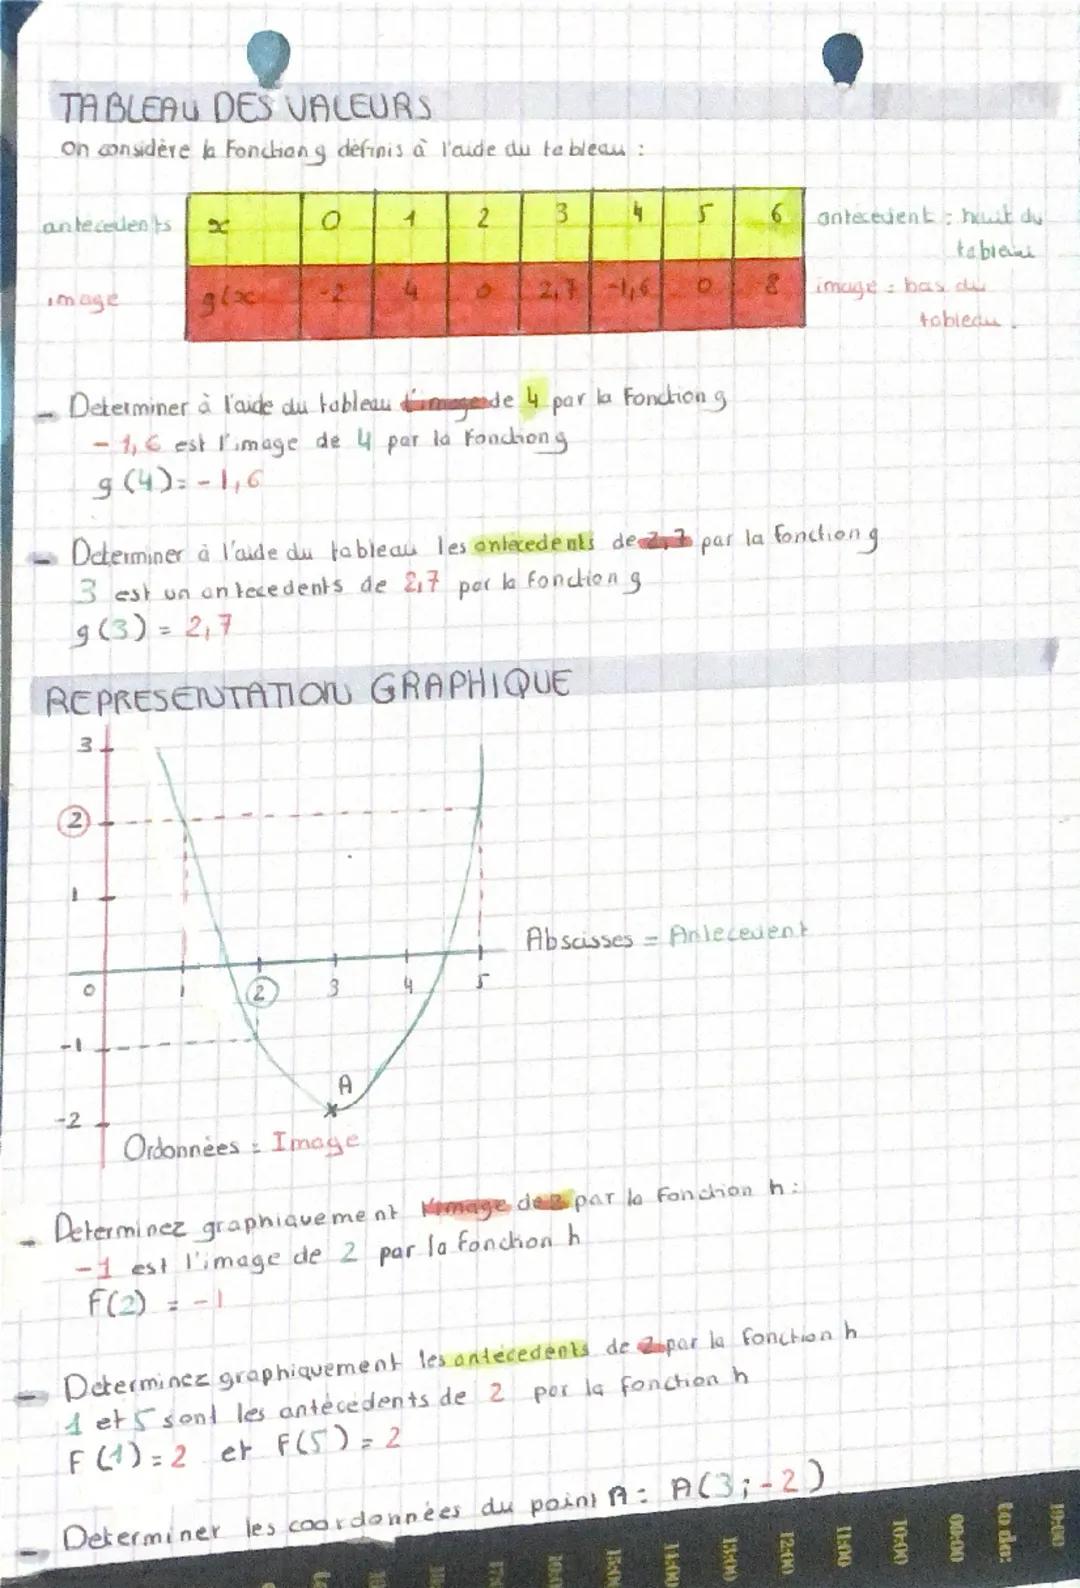 TABLEAU DES VALEURS
On considère la Fonction g définis à l'aide du tableau :
antecedents x 0 1 2 3 4 5 6 antecedent : haut du
tableau
image g(x -2 4 0 2,7 -1,6 0 8 image : bas du
tableau.
- Determiner à l'aide du tableau l'image de 4 par la Fonction g
- 1,6 est l'image de 4 par la Fonction g
g (4) = - 1,6
- Determiner à l'aide du tableau les antecedents de 2,7 par la fonction g
3 est un antecedents de 2,7 par la fonction g
g (3) = 2,7
REPRESENTATION GRAPHIQUE
3
2
1
Abscisses = Antecedent
0 1 2 3 4 5
-1
A
-2
Ordonnèes : Image
- Determinez graphiquement l'image de 2 par la Fonction h :
-1 est l'image de 2 par la fonction h
F(2) = -1
- Determinez graphiquement les antècedents de 2 par la fonction h
1 et 5 sont les antècedents de 2 par la fonction h
F (1) = 2 et F(5) = 2
- Determiner les coordonnèes du point A : A(3 ; -2)
15:00 14:00 13:00 12:00 11:00 10:00 09:00 to do: 19:00